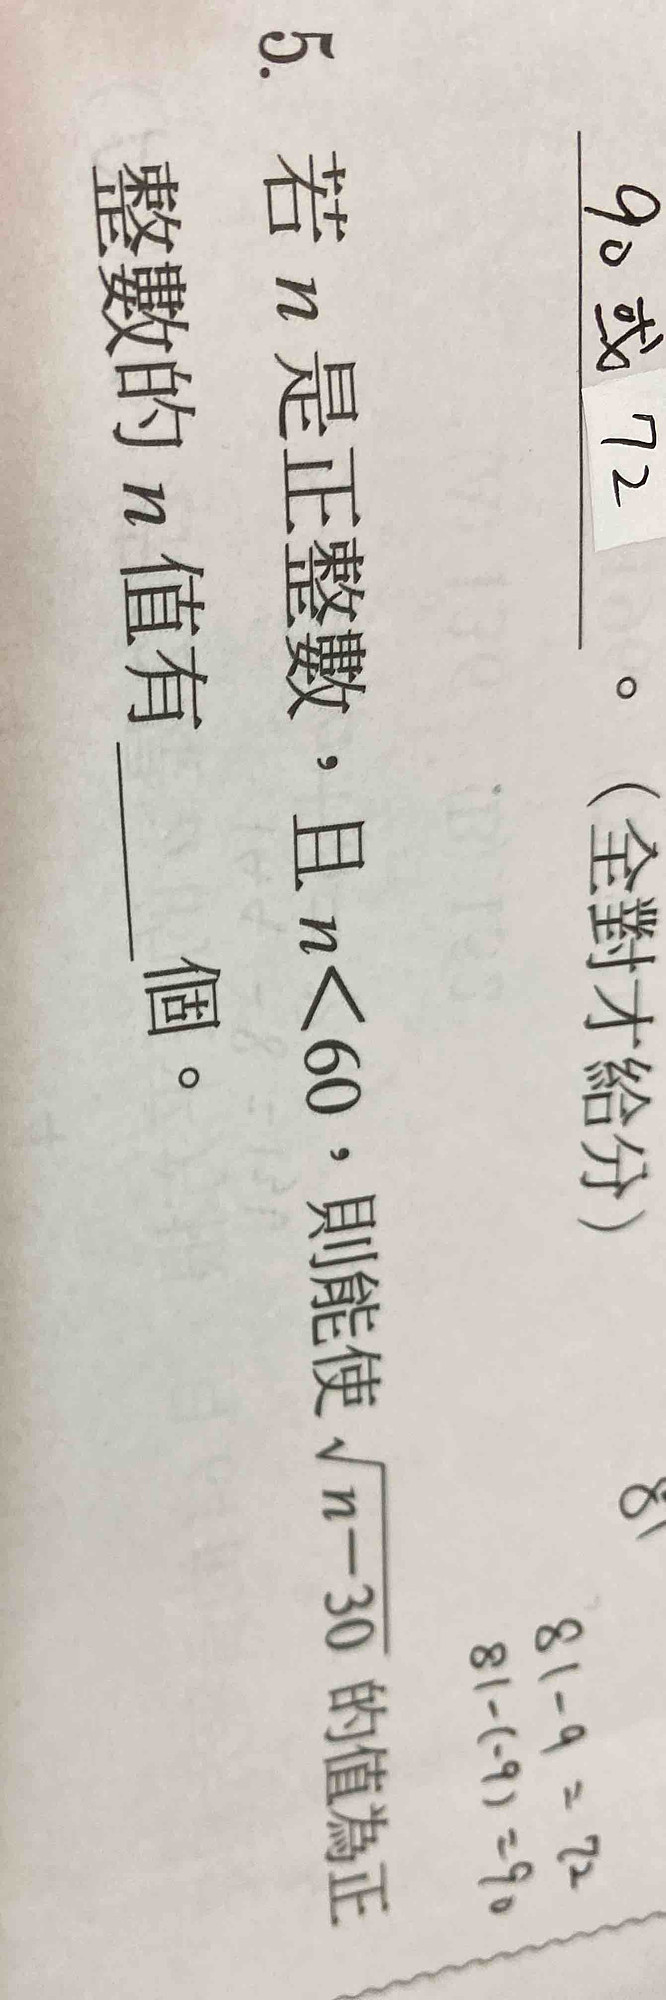 90或72。（全對才給分）
81
81-9=72
81-(-9)=90
5. 若n是正整數，且n<60，則能使√(n-30)的值為正
整數的n值有____個。